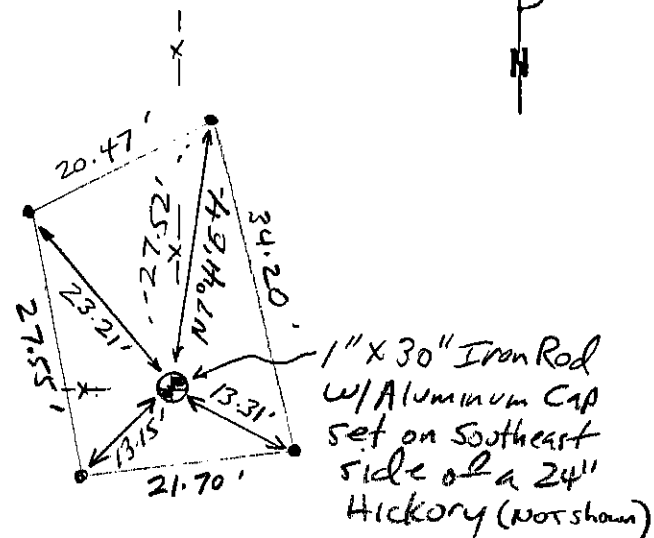 N
20.47'
27.52'
N7°41'34"E
34.20'
23.21'
27.55'
13.31'
13.15'
21.70'
1" X 30" Iron Rod
W/Aluminum Cap
set on Southeast
side of a 24"
Hickory (NOT shown)